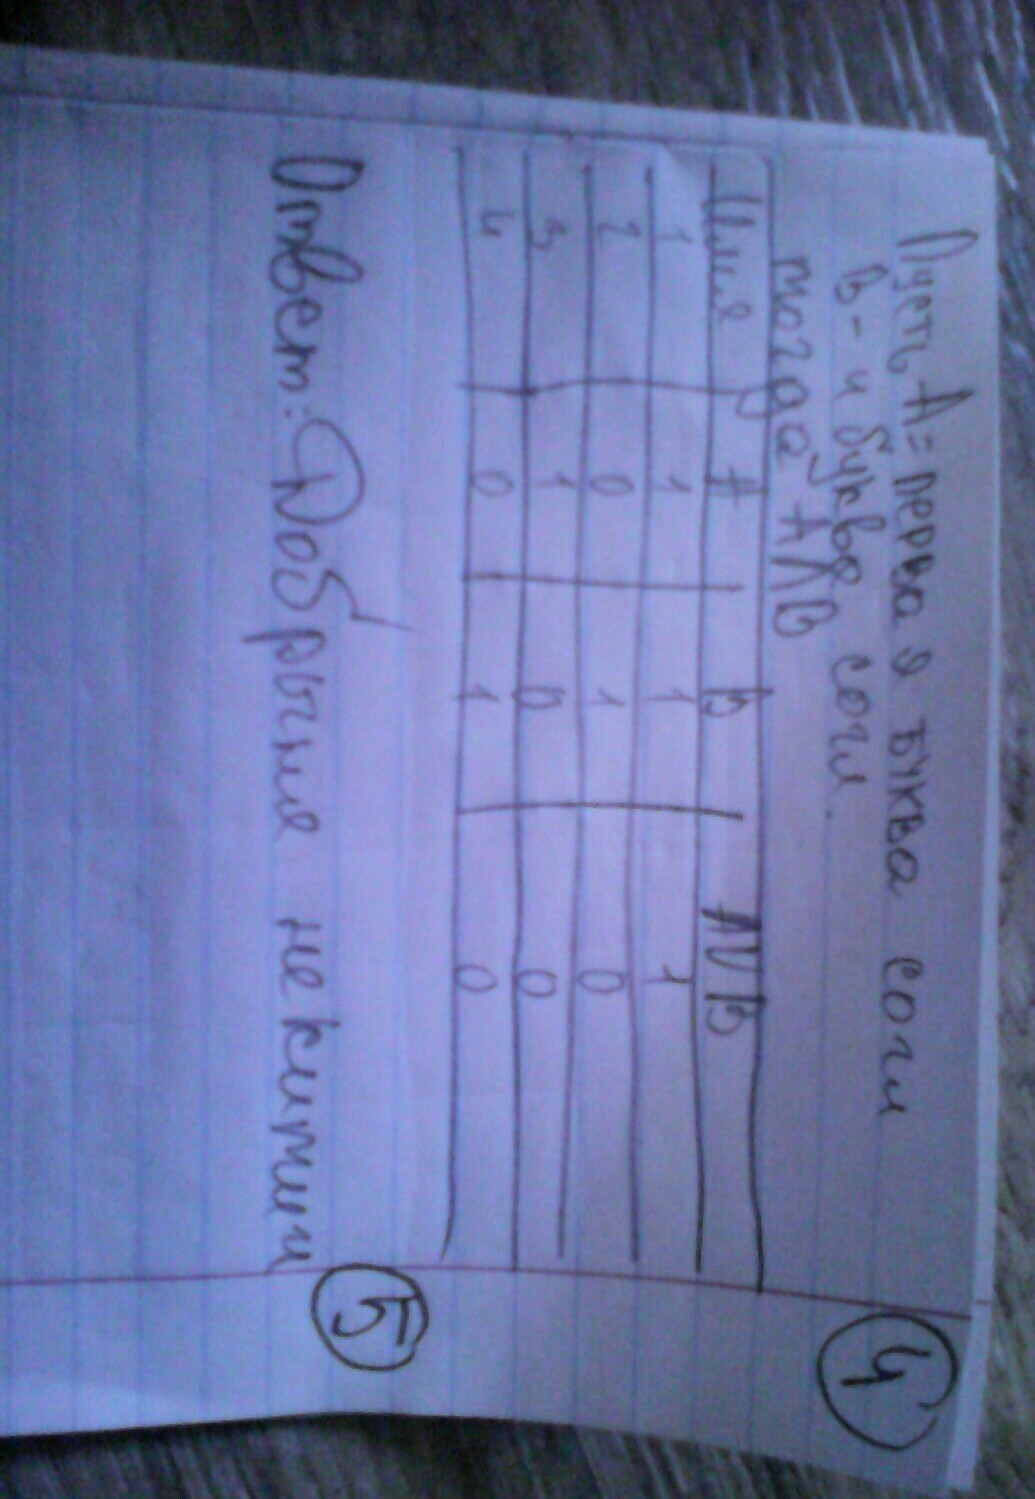 Пусть A = первая буква согл
B - 4 буква согл.
тогда A Λ B
Имя A B AΛB
1 1 1 1
2 0 1 0
3 1 0 0
4 0 1 0
Ответ: Добрыня некитич
4
5